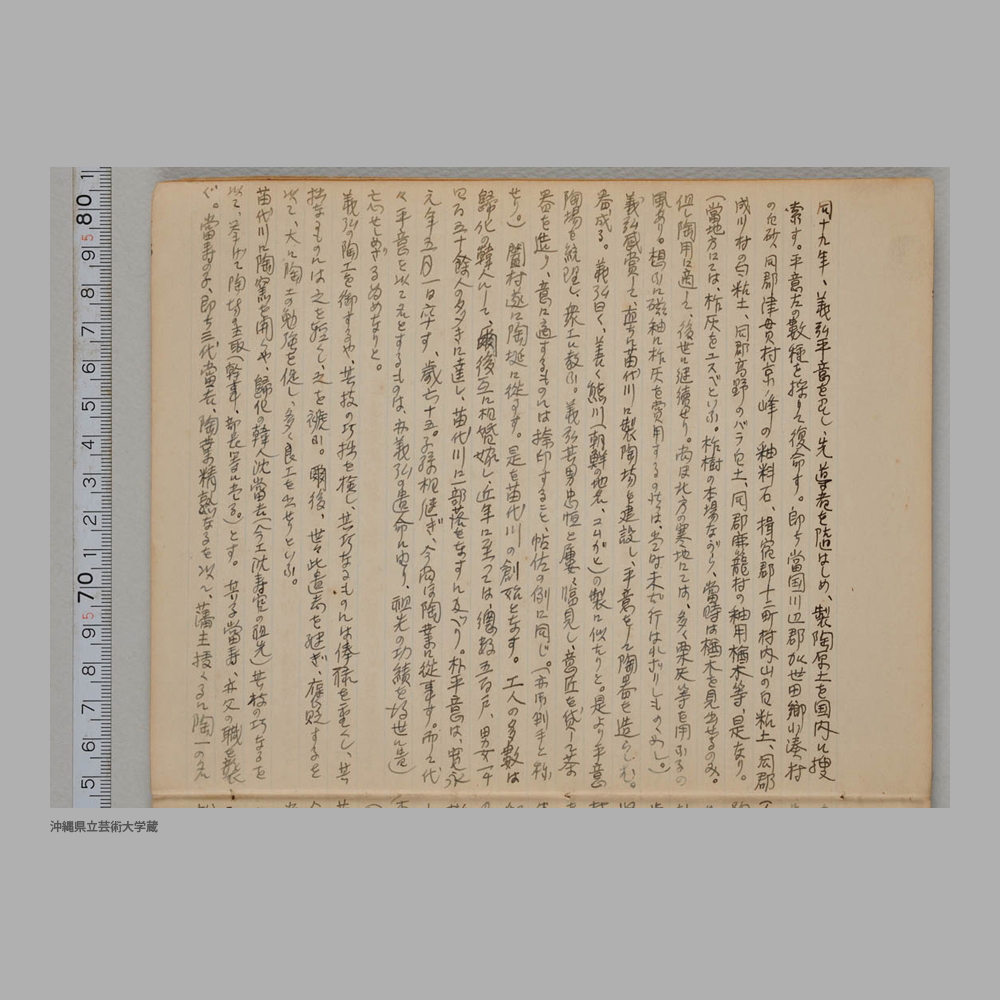 同十九年、義弘平意を召し、先導者を随はしめ、製陶原土を国内に捜
索す。平意左の数種を採りて復命す。即ち當国川辺郡加世田郷小湊村
の白砂、同郡津貫村京ノ峰の釉料石、揖宿郡十二町村内山の白粘土、同郡
成川村の白粘土、同郡高野のバラ白土、同郡鹿籠村の釉用楢木等、是なり。
(當地方にては、柞灰をユスベといふ。柞樹の本場ながら、當時は楢木を見出せるのみ。
但し陶用に適して、後世に継續せり。尚ほ北方の寒地にては、多く栗灰等を用ふるの
風あり。想ふに磁釉に柞灰を費用するの法は、当時未だ行はれざりしものゝ如し。)
義弘感賞して、直ちに苗代川に製陶場を建設し、平意をして陶器を造らしむ。
器成る。義弘曰く、善く熊川(朝鮮の地名、コムガヒ)の製に似たりと。是より平意
陶場を統理し、衆工に教ふ。義弘其男忠恒と屢〻臨見し、意匠を貸して茶
器を造り、意に適するものには捺印すること、帖佐の例に同じ。(亦御判手と称
せり) 闔村遂に陶埏に従事す。是を苗代川の創始となす。工人の多数は
歸化の韓人にして、爾後互に相婚嫁し、近年に至つては、總数五百戸、男女一千
四百五十餘人の多きに達し、苗代川に一部落をなすに及べり。朴平意は、寛永
元年五月一日卒す、歳六十五。子孫相継ぎ、今尚ほ陶業に従事す。而して代
々平意を以て名とするものは、亦義弘の遺命に由り、祖先の功績を後世に遺
忘せしめざる為めなりと。
義弘の陶工を御するや、其技の巧拙を検し、其巧なるものには俸禄を重くし、其
拙なるものには之を軽くし、之を褫ふ。爾後、世々此遺志を継ぎ、廃貶するを
以て、大に陶工の勉強を促し、多く良工を出せりといふ。
苗代川に陶窯を開くや、歸化の韓人沈當吉(今ノ沈壽官の祖先)其技の巧なるを
以て、挙げて陶坊ノ主取(幹事、部長等に当る。)とす。其子當壽、亦父の職を襲
ぐ。當壽の子、即ち三代當吉、陶業精熟なるを以て、藩主授くるに陶一の名